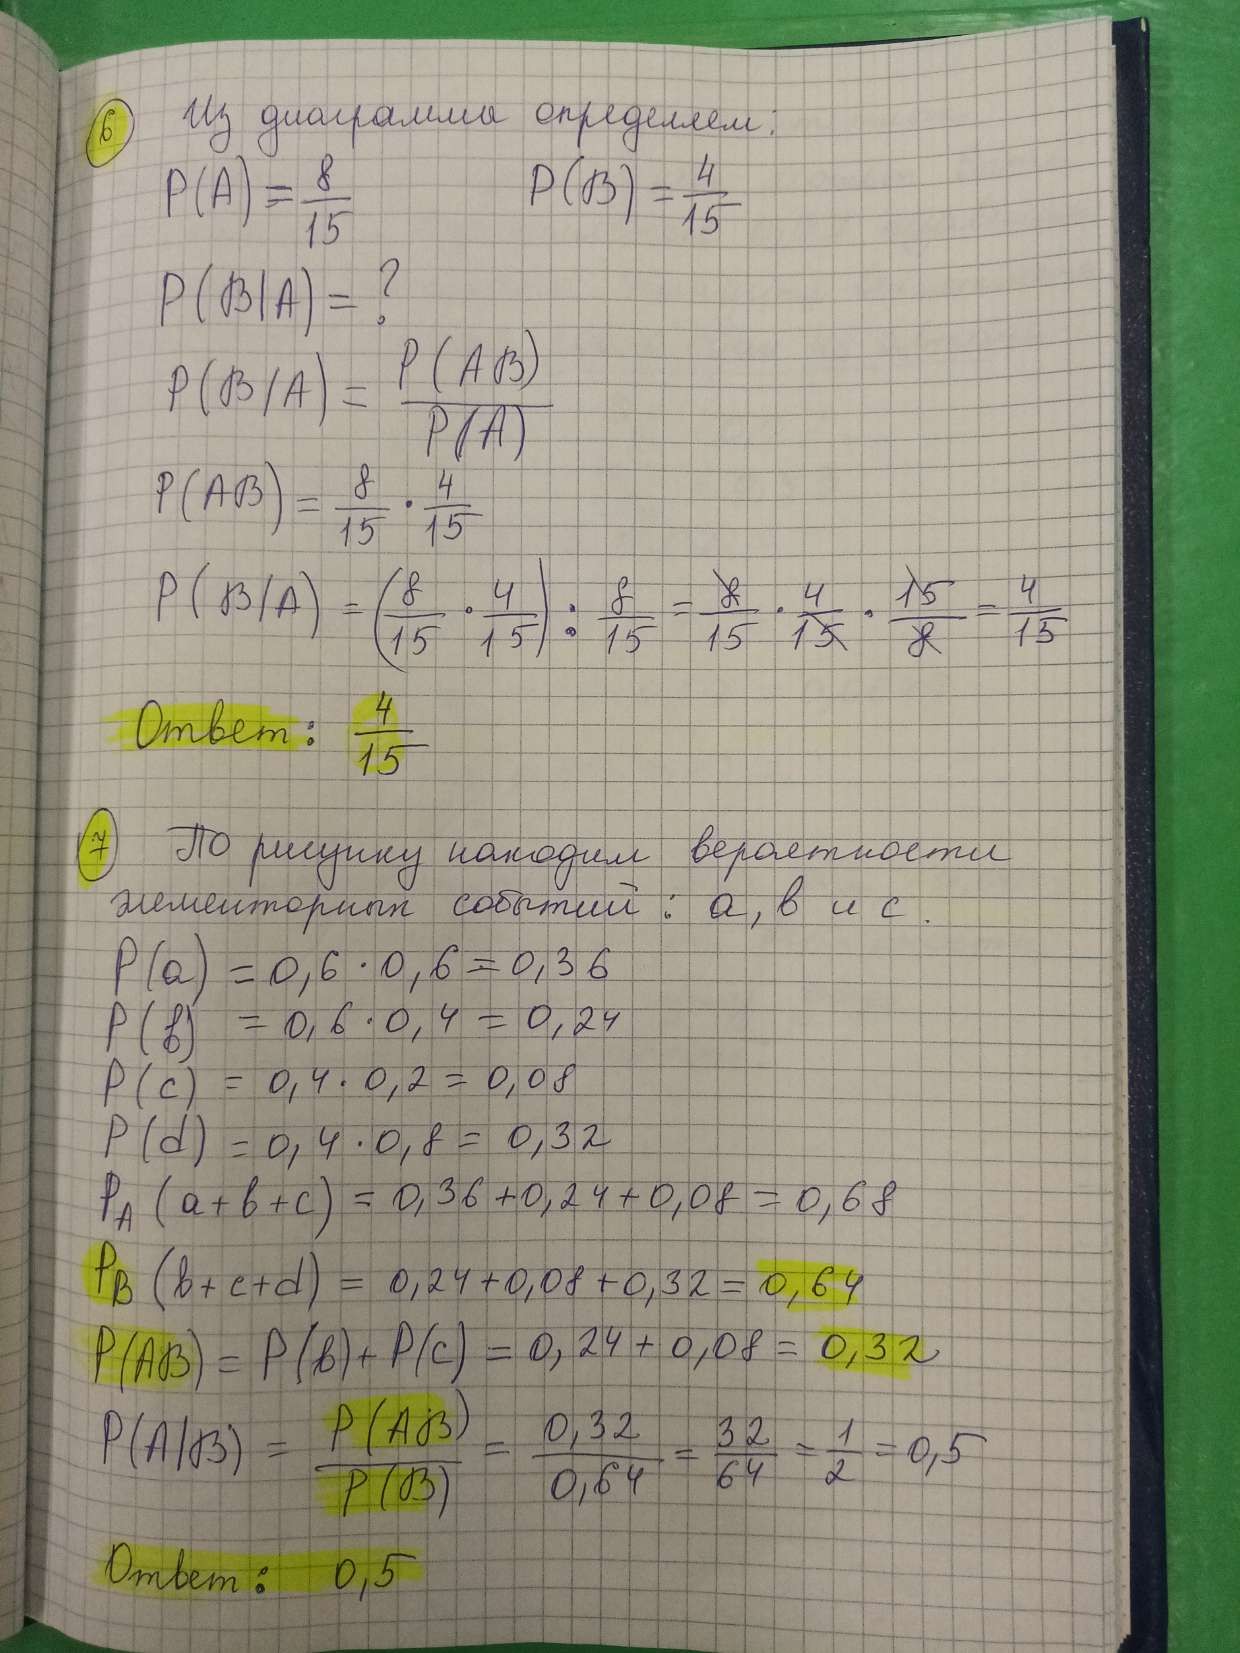 6 Из диаграммы определяем:
P(A) = 8/15 P(B) = 4/15
P(B|A) = ?
P(B/A) = P(AB)/P(A)
P(AB) = 8/15 · 4/15
P(B/A) = (8/15 · 4/15) : 8/15 = 8/15 · 4/15 · 15/8 = 4/15
Ответ: 4/15
7 По рисунку находим вероятности
элементорных событий: a, b и c.
P(a) = 0,6 · 0,6 = 0,36
P(b) = 0,6 · 0,4 = 0,24
P(c) = 0,4 · 0,2 = 0,08
P(d) = 0,4 · 0,8 = 0,32
P_A (a+b+c) = 0,36+0,24+0,08 = 0,68
P_B (b+c+d) = 0,24+0,08+0,32 = 0,64
P(AB) = P(b)+P(c) = 0,24+0,08 = 0,32
P(A|B) = P(AB)/P(B) = 0,32/0,64 = 32/64 = 1/2 = 0,5
Ответ: 0,5